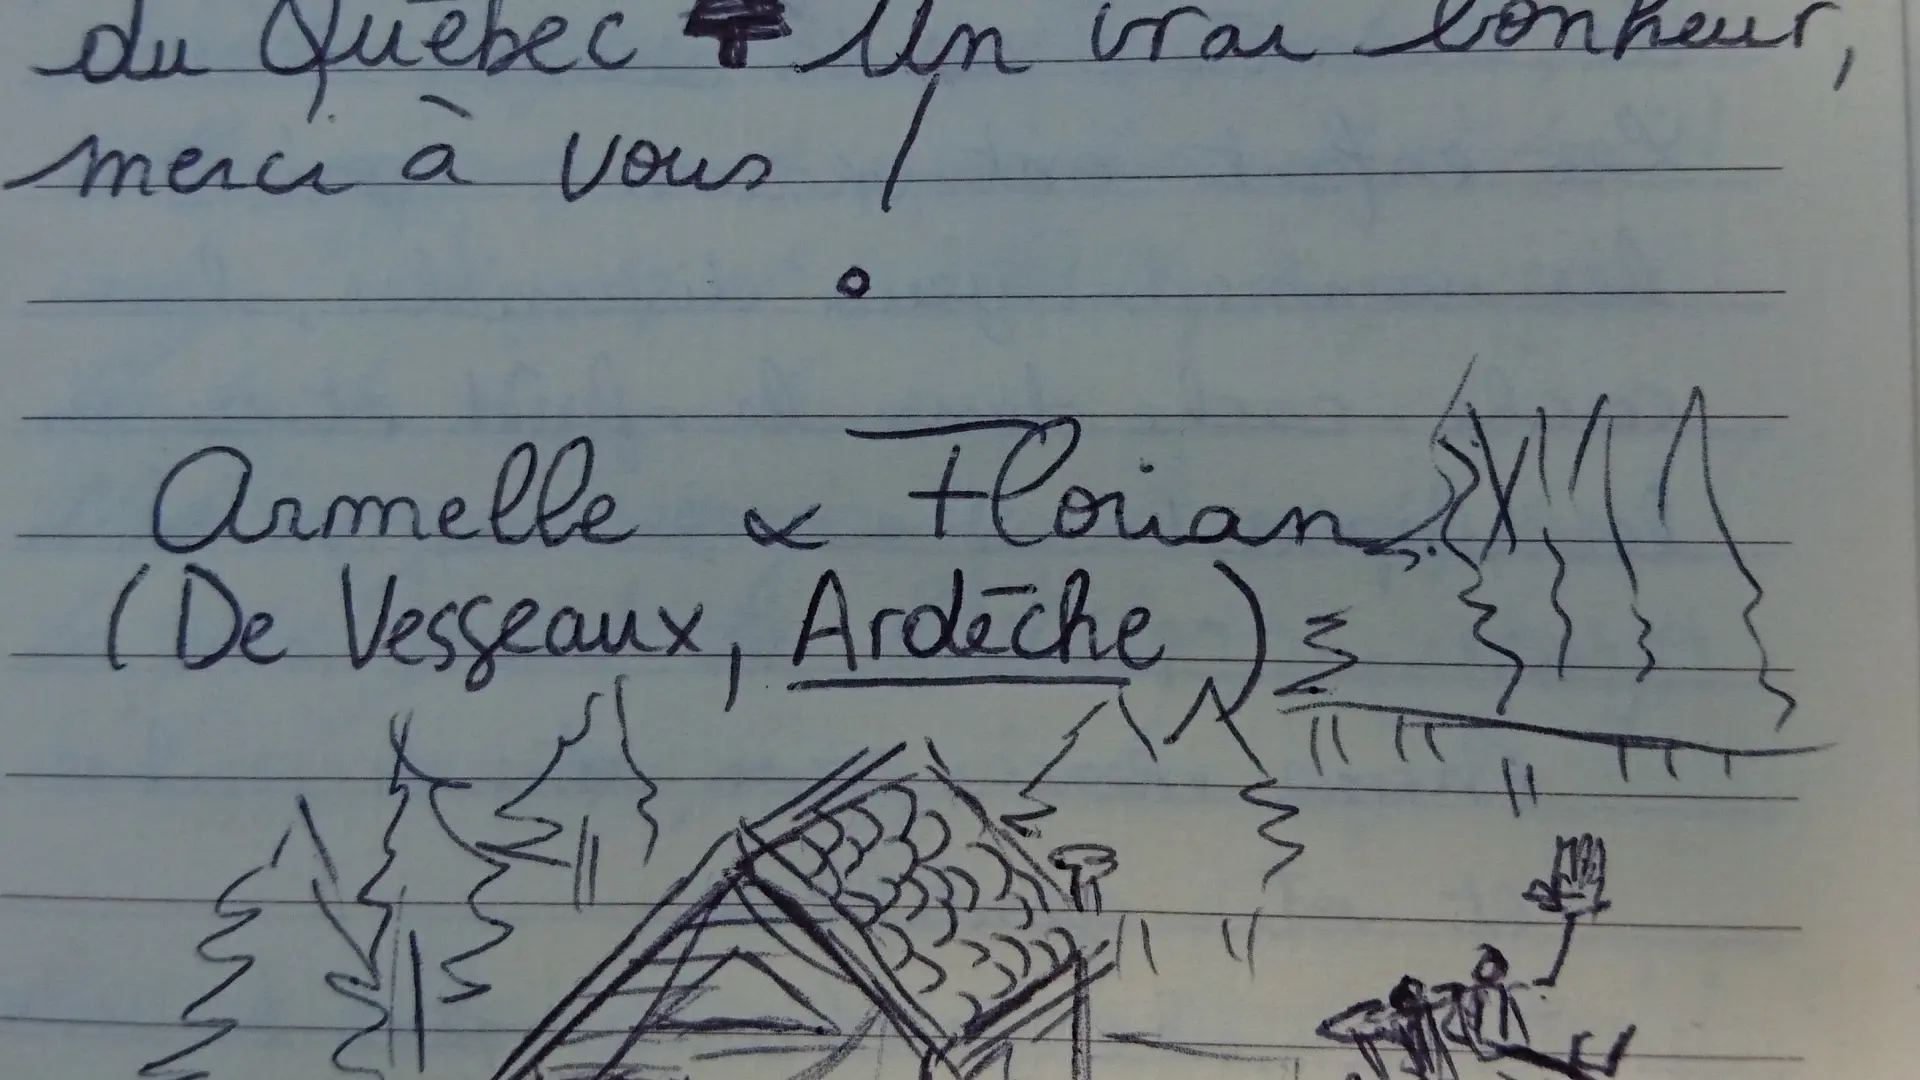 du Québec Un vrai bonheur,
merci à vous !
Armelle & Florian
(De Vesseaux, Ardèche)